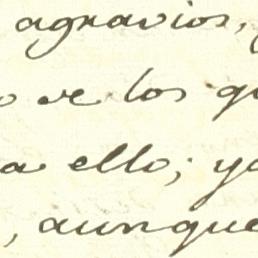 agravios,
o de los qu
a ello; ya
, aunque